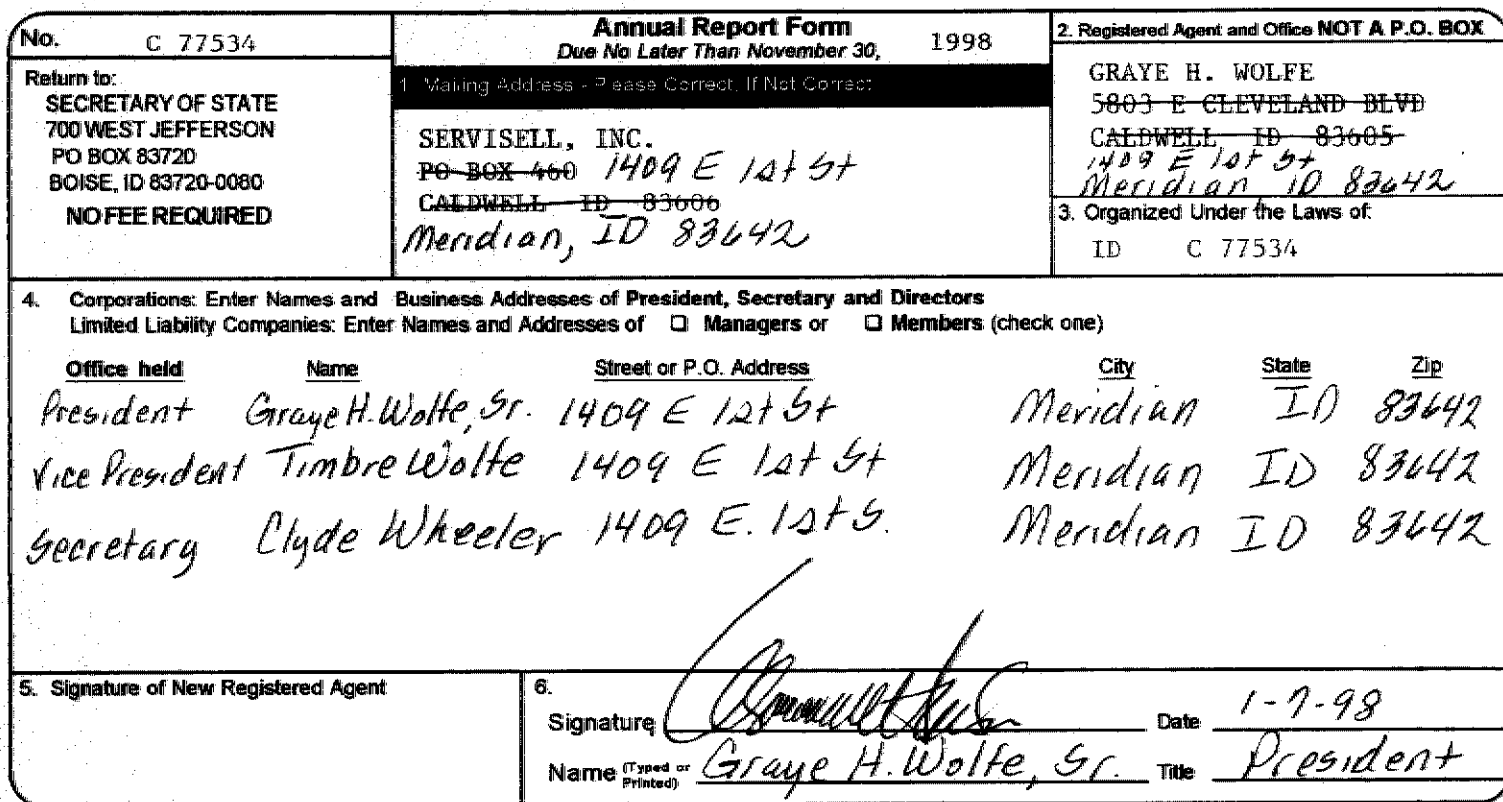 No. C 77534
Return to:
SECRETARY OF STATE
700 WEST JEFFERSON
PO BOX 83720
BOISE, ID 83720-0080
NO FEE REQUIRED
Annual Report Form
Due No Later Than November 30, 1998
1. Mailing Address - Please Correct, If Not Correct
SERVISELL, INC.
PO BOX 460 1409 E 1st St
CALDWELL ID 83606
Meridian, ID 83642
2. Registered Agent and Office NOT A P.O. BOX
GRAYE H. WOLFE
5803 E CLEVELAND BLVD
CALDWELL ID 83605
1409 E 1st St
Meridian ID 83642
3. Organized Under the Laws of:
ID C 77534
4. Corporations: Enter Names and Business Addresses of President, Secretary and Directors
Limited Liability Companies: Enter Names and Addresses of ☐ Managers or ☐ Members (check one)
Office held Name Street or P.O. Address City State Zip
President Graye H. Wolfe, Sr. 1409 E 1st St Meridian ID 83642
Vice President Timbre Wolfe 1409 E 1st St Meridian ID 83642
Secretary Clyde Wheeler 1409 E. 1st S. Meridian ID 83642
5. Signature of New Registered Agent
6.
Signature Date 1-7-98
Name (Typed or Printed) Graye H. Wolfe, Sr. Title President